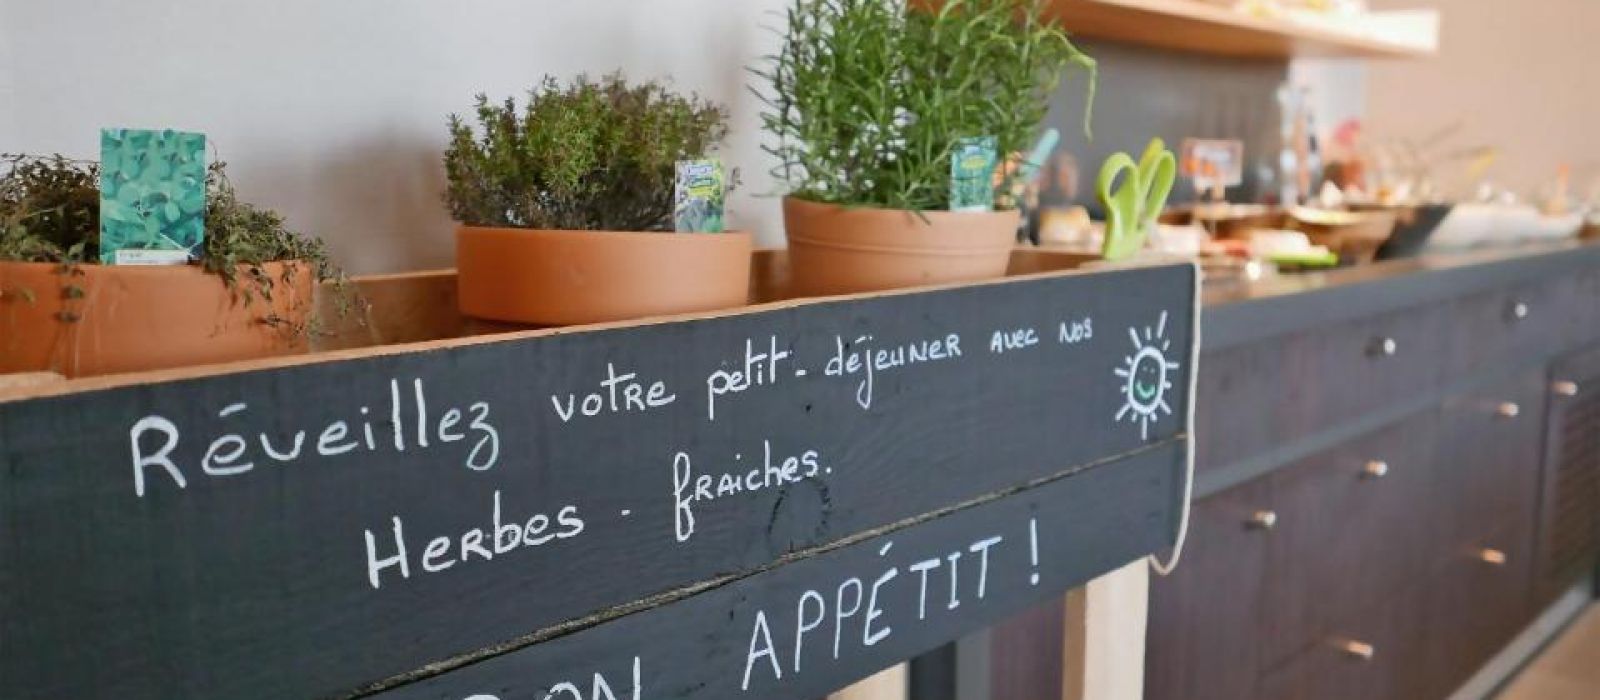 Réveillez votre petit-déjeuner avec nos
Herbes - fraîches.
BON APPÉTIT !